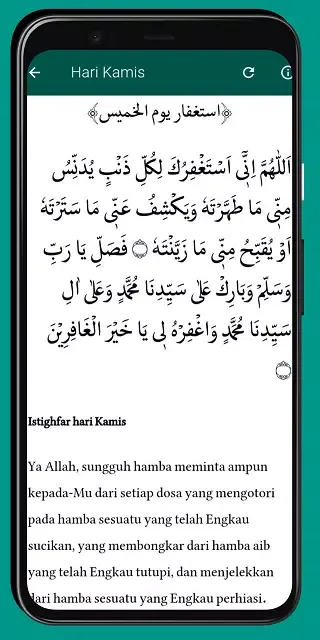 Hari Kamis
﴿استغفار يوم الخميس﴾
اَللّٰهُمَّ اِنِّيْٓ اَسْتَغْفِرُكَ لِكُلِّ ذَنْبٍ يُدَنِّسُ
مِنِّيْ مَا طَهَّرْتَهٗ وَيَكْشِفُ عَنِّيْ مَا سَتَرْتَهٗ
اَوْ يُقَبِّحُ مِنِّيْ مَا زَيَّنْتَهٗ ۝ فَصَلِّ يَا رَبِّ
وَسَلِّمْ وَبَارِكْ عَلٰى سَيِّدِنَا مُحَمَّدٍ وَعَلٰى اٰلِ
سَيِّدِنَا مُحَمَّدٍ وَاغْفِرْهُ لِي يَا خَيْرَ الْغَافِرِيْنَ
۝
Istighfar hari Kamis
Ya Allah, sungguh hamba meminta ampun
kepada-Mu dari setiap dosa yang mengotori
pada hamba sesuatu yang telah Engkau
sucikan, yang membongkar dari hamba aib
yang telah Engkau tutupi, dan menjelekkan
dari hamba sesuatu yang Engkau perhiasi.